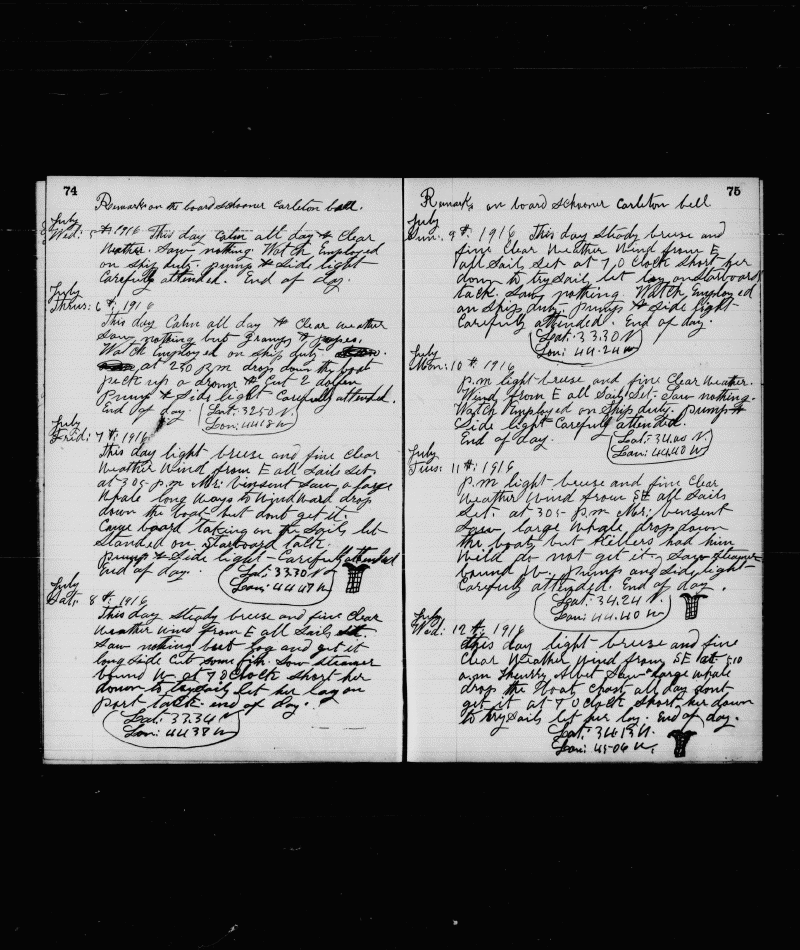 74
Remarks on the board schooner Carleton bell.
July
Wed: 5th 1916 This day Calm all day & Clear
Weather. Saw nothing. Watch Employed
on Ship duty. pump & Side light
Carefully attended. End of day.
July
Thrus: 6th, 1916
This day Calm all day & Clear weather
Saw nothing but Gramps &
Watch Employed on Ship duty
at 230 P.m drop down the boat
peck up a drown & Cut 2 dozen
Pump & Side light Carefully attended.
End of day. Lat: 32.50 N.
Lon: 44.18 W
July
Frid: 7th, 1916
This day light breuse and fine Clear
Weather Wind from E all Sails Set.
at 305 p.m Mr: Vinsent Saw a large
Whale long ways to Windward drop
down the boat but dont get it.
board taking on the Sails let
standed on Starboard talk.
pump & Side light Carefully attended
End of day. Lat: 33.30 N
Lon: 44.47 W
July
Sat: 8th, 1916
This day Steady breuse and fine Clear
weather wind from E all Sails Set.
Saw nothing but log and get it
long side Cut some fish. Saw steamer
bound W. at 7 O Clock Short her
down to trysail let her lay on
port talk. end of day.
Lat: 33.34 N
Lon: 44 38 W
75
Remarks on board schooner Carleton bell
July
Sun: 9th, 1916 This day Steady breuse and
fine Clear Weather Wind from E
all Sails Set. at 7,0 Clock Short her
down to trysail let lay on Starboard
tack. Saw nothing. Watch Employed
on Ship duty. Pump & Side light
Carefully attended. End of day.
Lat: 33.30 N
Lon: 44.24 W
July
Mon: 10th, 1916
p.m light breuse and fine Clear weather.
Wind from E all Sails Set. Saw nothing.
Watch Employed on Ship duty. pump &
Side light Carefuly attended.
End of day. Lat: 34.00 N.
Lon: 44.40 W
July
Tues: 11th: 1916
P.m light breuse and fine Clear
Weather Wind from SE all Sails
Set. at 305 p.m Mr: Vensent
Saw large Whale, drop down
the boats but Killers had him
Wild do not get it, Saw Steamer
bound W. Pump and Side light
Carefuly attended. End of day.
Lat: 34.24 N
Lon: 44.40 W
July
Wed: 12th, 1916
this day light breuse and fine
Clear Weather Wind from SE at 5:10
a.m Albet Saw large whale
drop the boat Chast all day dont
get it at 7 O Clock Short her down
to trysails let her lay. End of day.
Lat: 34 19 N.
Lon: 45.06 W